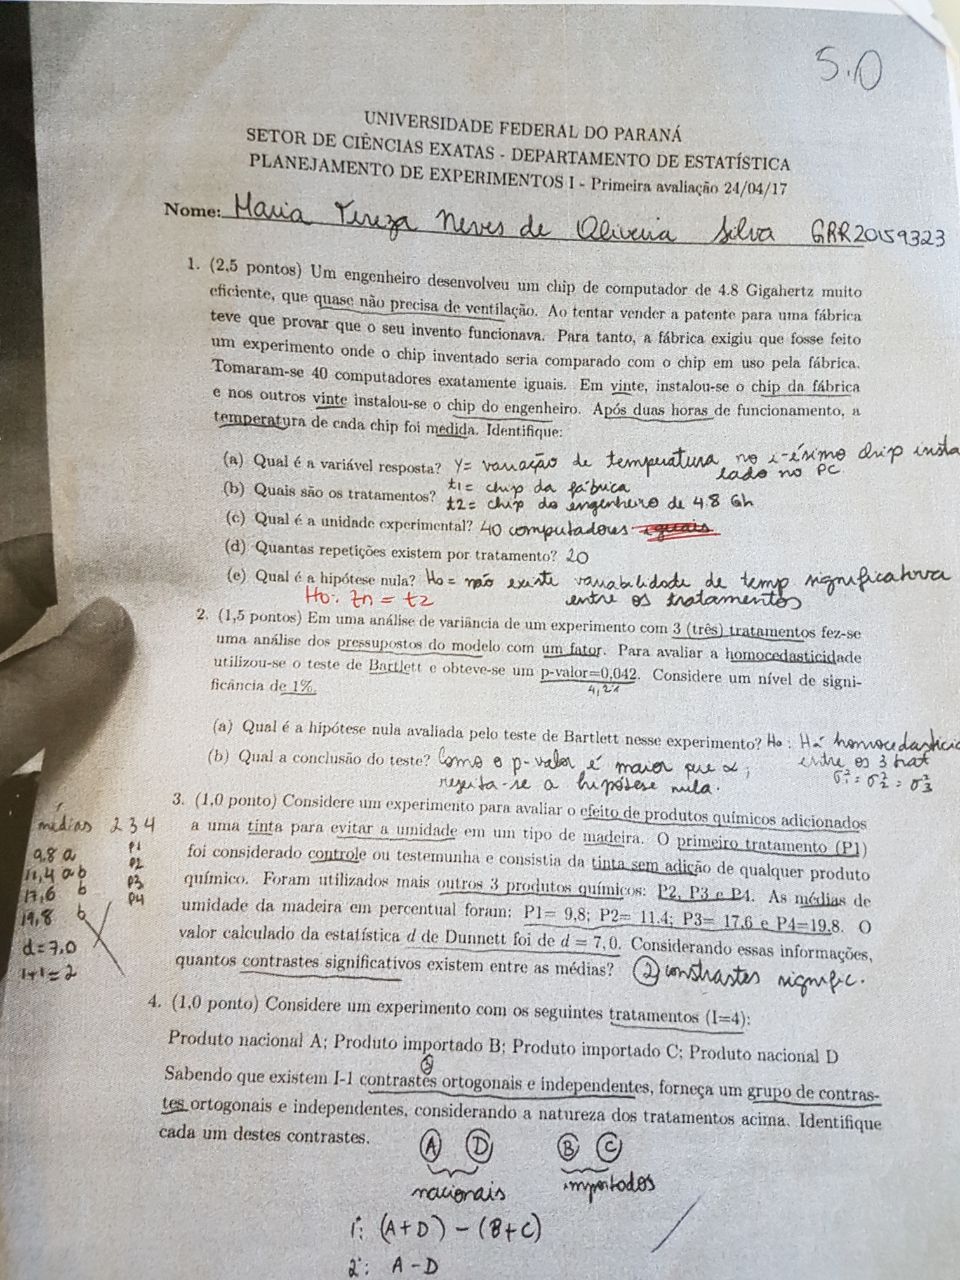 5.0
UNIVERSIDADE FEDERAL DO PARANÁ
SETOR DE CIÊNCIAS EXATAS - DEPARTAMENTO DE ESTATÍSTICA
PLANEJAMENTO DE EXPERIMENTOS I - Primeira avaliação 24/04/17
Nome: Maria Tereza Neves de Oliveira Silva GRR20159323
1. (2,5 pontos) Um engenheiro desenvolveu um chip de computador de 4.8 Gigahertz muito
eficiente, que quase não precisa de ventilação. Ao tentar vender a patente para uma fábrica
teve que provar que o seu invento funcionava. Para tanto, a fábrica exigiu que fosse feito
um experimento onde o chip inventado seria comparado com o chip em uso pela fábrica.
Tomaram-se 40 computadores exatamente iguais. Em vinte, instalou-se o chip da fábrica
e nos outros vinte instalou-se o chip do engenheiro. Após duas horas de funcionamento, a
temperatura de cada chip foi medida. Identifique:
(a) Qual é a variável resposta? Y= variação de temperatura no i-ésimo chip insta
lado no PC.
(b) Quais são os tratamentos? t1= chip da fábrica
t2= chip do engenheiro de 4.8 Gh
(c) Qual é a unidade experimental? 40 computadores iguais
(d) Quantas repetições existem por tratamento? 20
(e) Qual é a hipótese nula? Ho = não existe variabilidade de temp significativa
entre os tratamentos
2. (1,5 pontos) Em uma análise de variância de um experimento com 3 (três) tratamentos fez-se
uma análise dos pressupostos do modelo com um fator. Para avaliar a homocedasticidade
utilizou-se o teste de Bartlett e obteve-se um p-valor=0,042. Considere um nível de signi-
ficância de 1%.
(a) Qual é a hipótese nula avaliada pelo teste de Bartlett nesse experimento? Ho: Há homocedastici
entre os 3 trat
σ²1 = σ²2 = σ²3
(b) Qual a conclusão do teste? Como o p-valor é maior que α,
rejeita-se a hipótese nula.
3. (1,0 ponto) Considere um experimento para avaliar o efeito de produtos químicos adicionados
a uma tinta para evitar a umidade em um tipo de madeira. O primeiro tratamento (P1)
foi considerado controle ou testemunha e consistia da tinta sem adição de qualquer produto
químico. Foram utilizados mais outros 3 produtos químicos: P2, P3 e P4. As médias de
umidade da madeira em percentual foram: P1= 9,8; P2= 11.4; P3= 17,6 e P4=19,8. O
valor calculado da estatística d de Dunnett foi de d = 7,0. Considerando essas informações,
quantos contrastes significativos existem entre as médias? 2 constrastes signific.
médias 2 3 4
9,8 a P1
11,4 ab P2
17,6 b P3
19,8 b P4
d=7,0
1+1=2
4. (1,0 ponto) Considere um experimento com os seguintes tratamentos (I=4):
Produto nacional A; Produto importado B; Produto importado C; Produto nacional D
Sabendo que existem I-1 contrastes ortogonais e independentes, forneça um grupo de contras-
tes ortogonais e independentes, considerando a natureza dos tratamentos acima. Identifique
cada um destes contrastes.
A D B C
nacionais importados
1º: (A+D) - (B+C)
2º: A - D